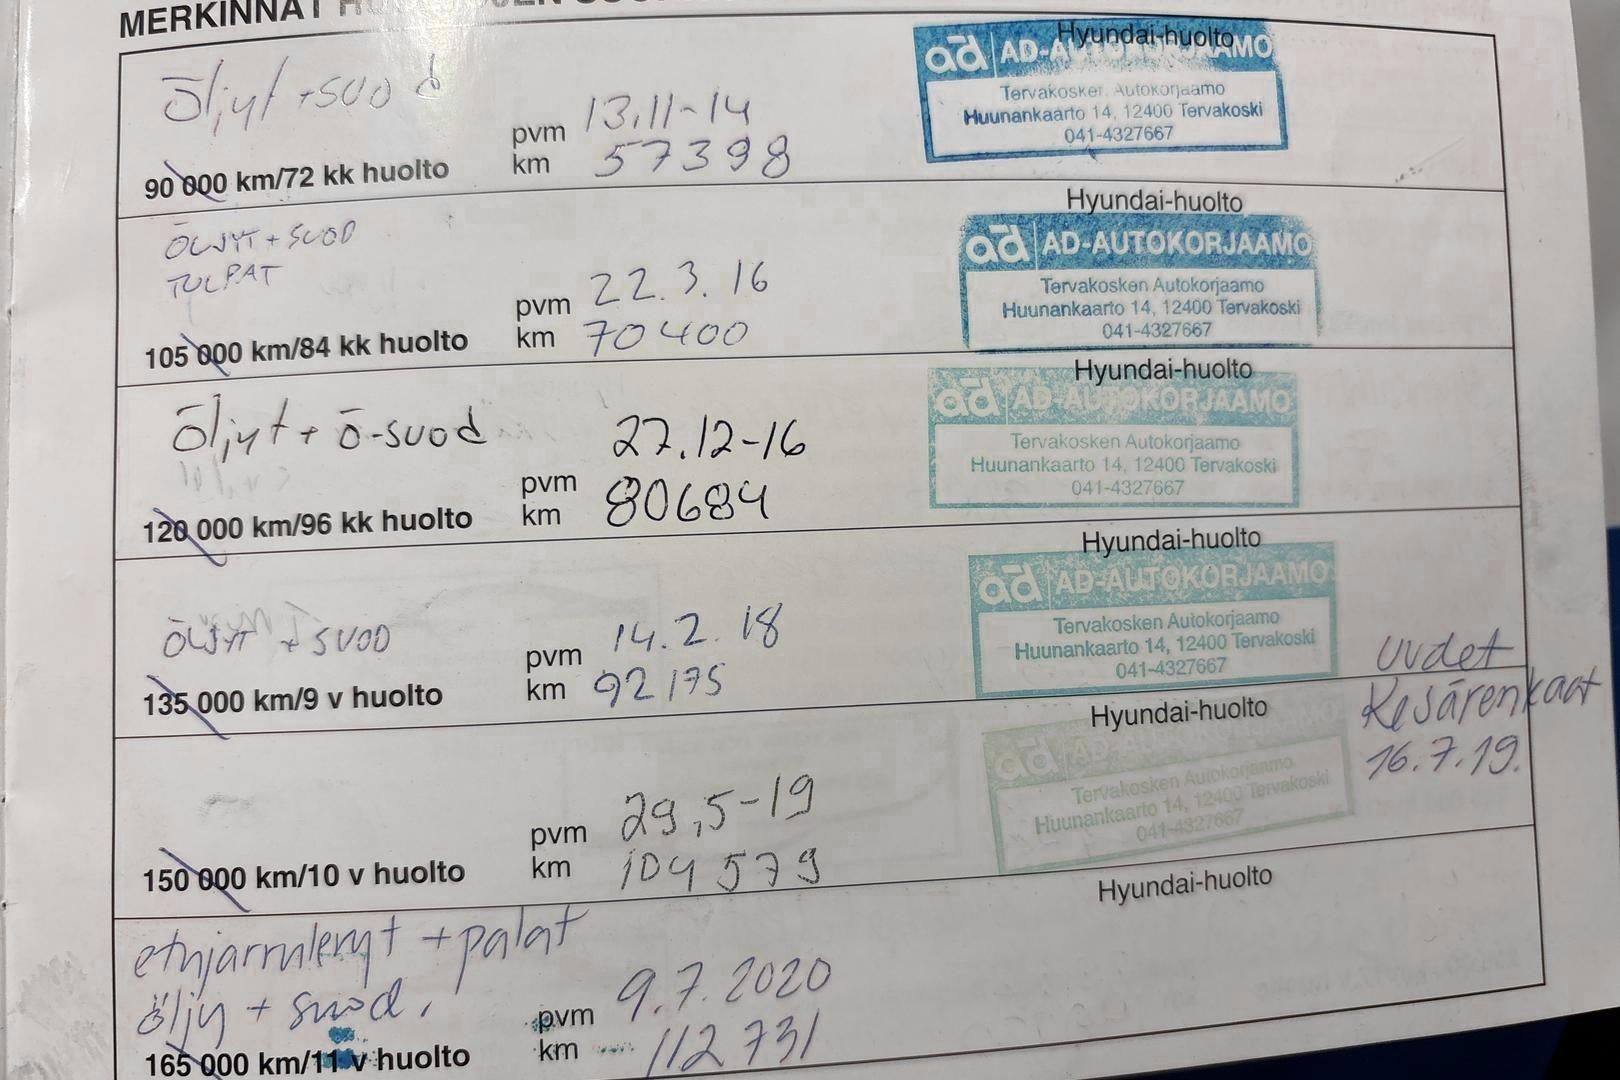 MERKINNÄT
Öljyt + suod
pvm 13.11-14
km 57398
90 000 km/72 kk huolto
Hyundai-huolto
ad AD-AUTOKORJAAMO
Tervakosken Autokorjaamo
Huunankaarto 14, 12400 Tervakoski
041-4327667
ÖLJYT + SUOD
TULPAT
pvm 22.3.16
km 70400
105 000 km/84 kk huolto
Hyundai-huolto
ad AD-AUTOKORJAAMO
Tervakosken Autokorjaamo
Huunankaarto 14, 12400 Tervakoski
041-4327667
Öljyt + ö-suod
pvm 27.12-16
km 80684
120 000 km/96 kk huolto
Hyundai-huolto
ad AD-AUTOKORJAAMO
Tervakosken Autokorjaamo
Huunankaarto 14, 12400 Tervakoski
041-4327667
ÖLJYT + SUOD
pvm 14.2.18
km 92175
135 000 km/9 v huolto
Hyundai-huolto
ad AD-AUTOKORJAAMO
Tervakosken Autokorjaamo
Huunankaarto 14, 12400 Tervakoski
041-4327667
uudet
Kesärenkaat
16.7.19.
pvm 29,5-19
km 104579
150 000 km/10 v huolto
Hyundai-huolto
ad AD-AUTOKORJAAMO
Tervakosken Autokorjaamo
Huunankaarto 14, 12400 Tervakoski
041-4327667
etujarrulevyt + palat
öljy + suod.
pvm 9.7.2020
km 112731
165 000 km/11 v huolto
Hyundai-huolto